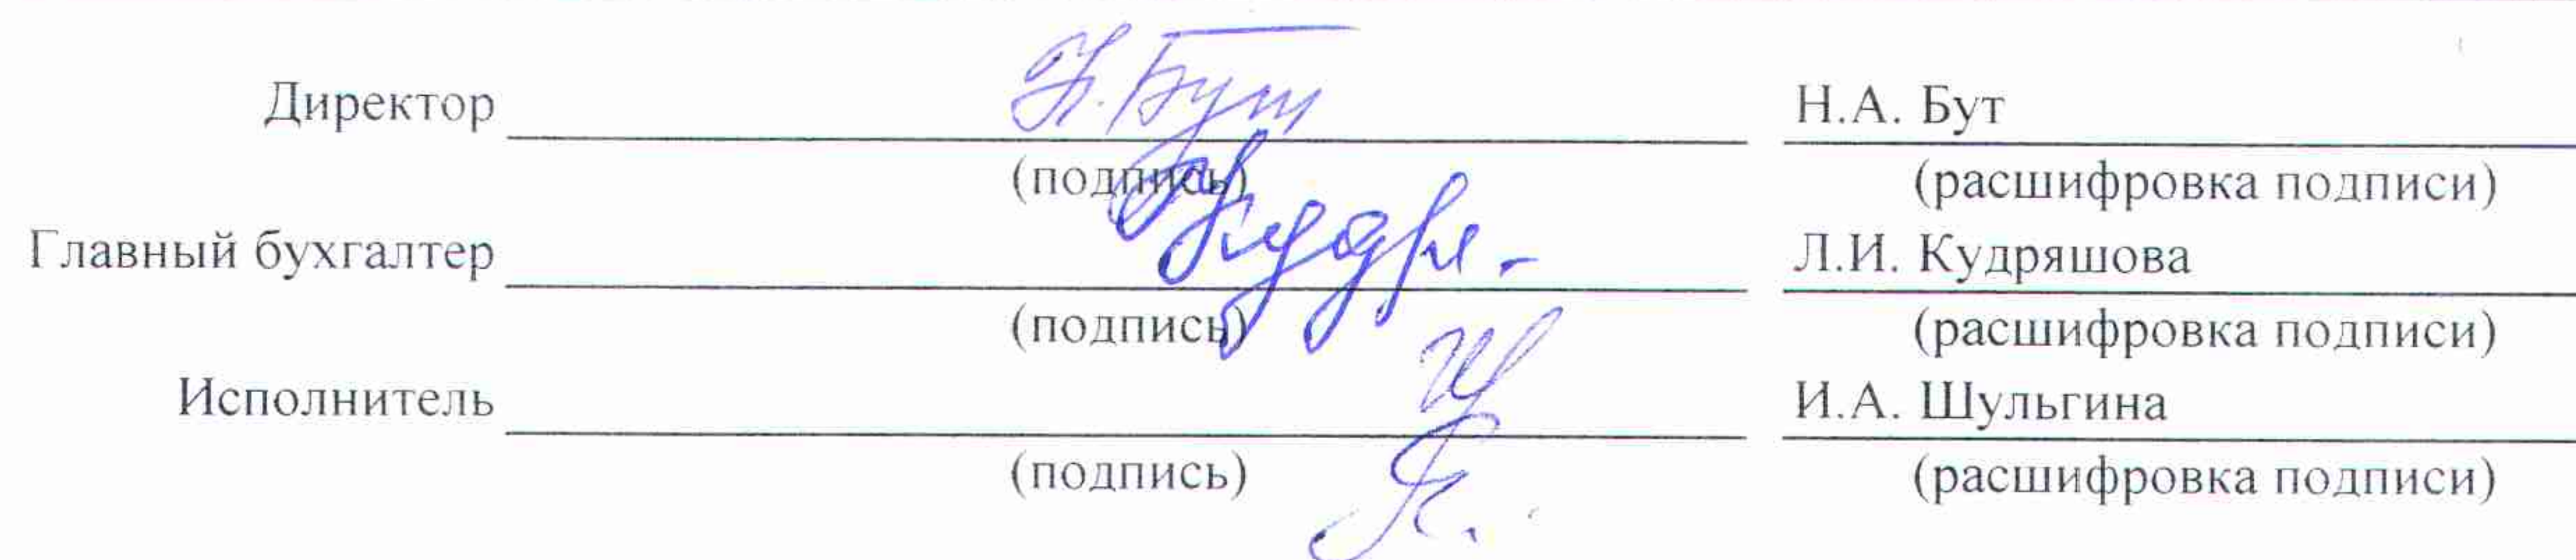 Директор Н. Бут Н.А. Бут
(подпись) (расшифровка подписи)
Главный бухгалтер Л.И. Кудряшова
(подпись) (расшифровка подписи)
Исполнитель И.А. Шульгина
(подпись) (расшифровка подписи)